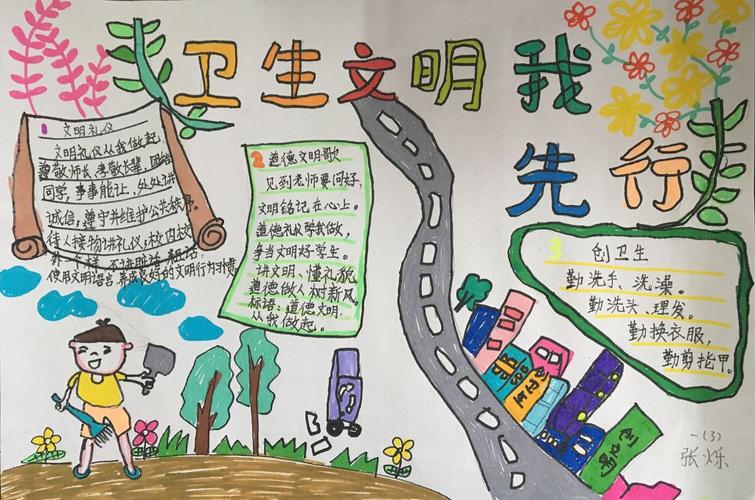 卫生文明我
先行
1 文明礼仪
文明礼仪从我做起。
尊敬师长,孝敬长辈,团结
同学,事事能让,处处讲
诚信,遵守并维护公共秩序。
待人接物讲礼仪,校内校
外一个样,不讲脏话、粗话,
使用文明语言,养成良好的文明行为习惯。
2 道德文明歌
见到老师要问好,
文明铭记在心上。
道德礼仪学我做,
争当文明好学生。
讲文明、懂礼貌
道德做人树新风。
标语:道德文明,
从我做起。
3 创卫生
勤洗手、洗澡。
勤洗头、理发。
勤换衣服,
勤剪指甲。
讲卫生
创文明
一(3)
张烁